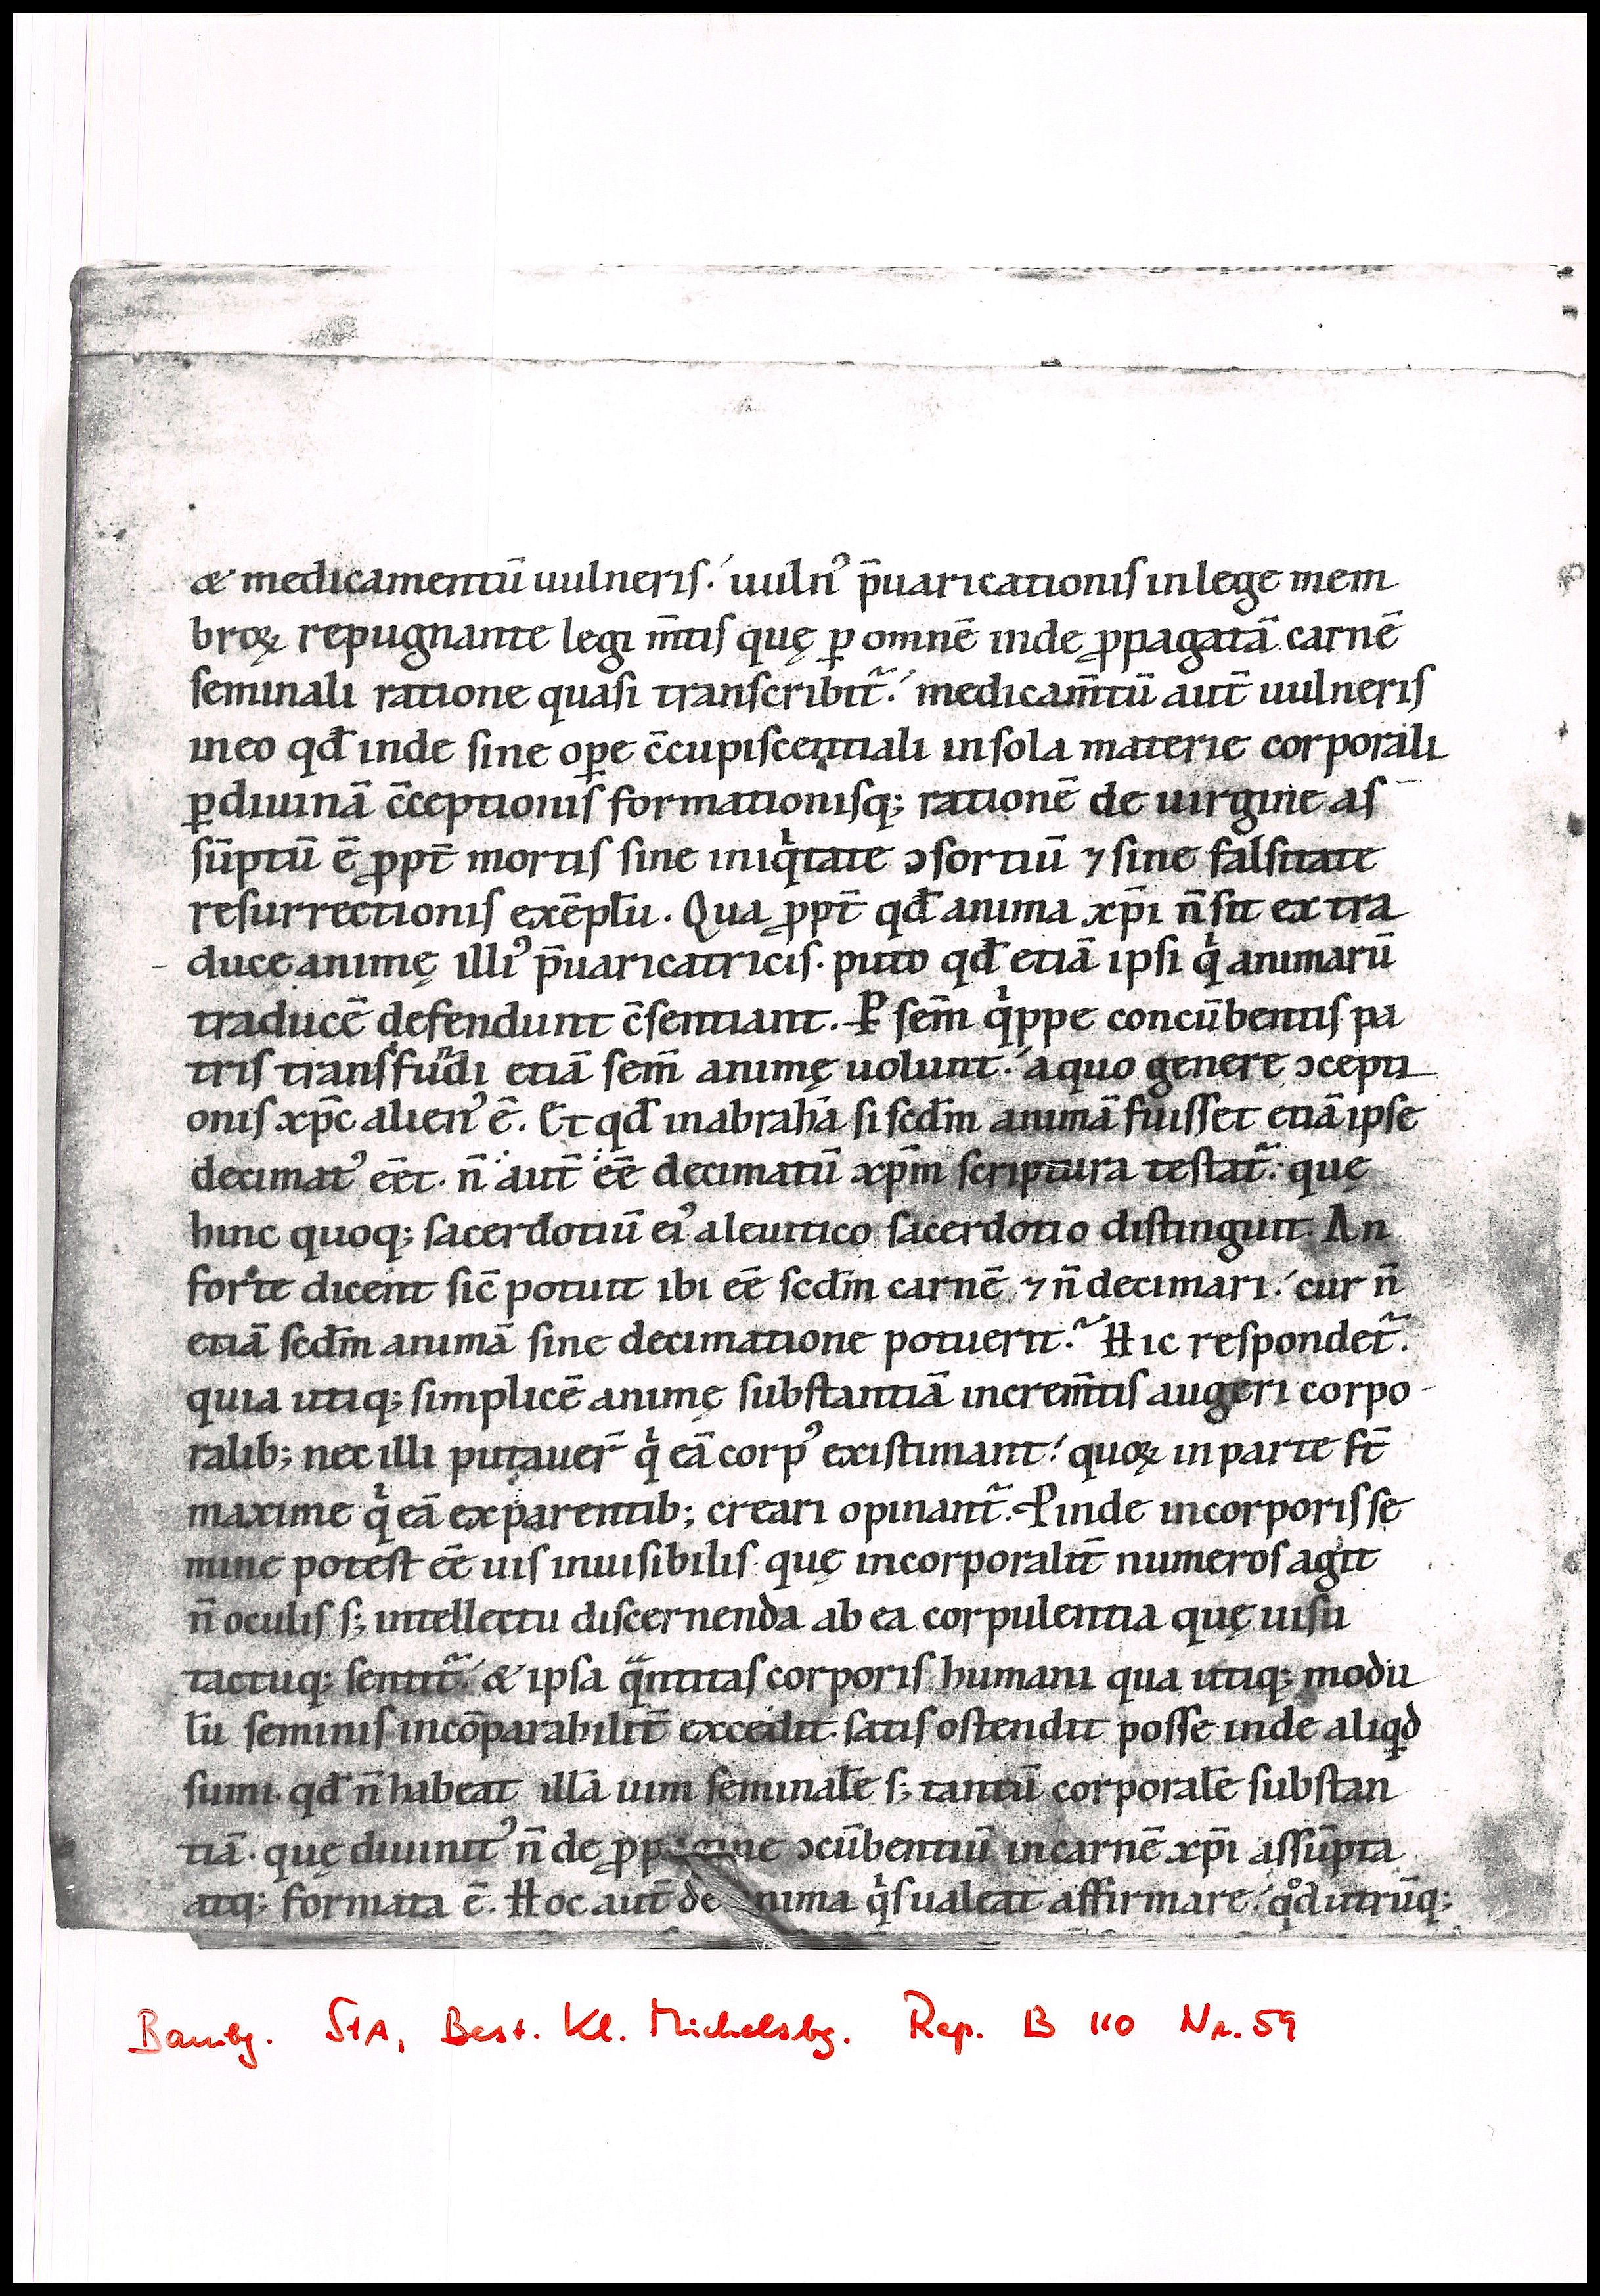 & medicamentū uulneris. uuln᾽ p̄uaricationis in lege mem
broꝝ repugnante legi m̄tis quę ꝑ omnē inde ꝓpagatā carnē
seminali ratione quasi transcribit᷑. medicam̄tū aut̄ uulneris
in eo qđ inde sine oꝑe c̄cupiscentiali in sola materie corporali
ꝑ diuinā c̄ceptionis formationisq; rationē de uirgine as
sūptū ē ꝓpt̄ mortis sine iniqͥtate ↄsortiū ⁊ sine falsitate
resurrectionis exēpl̄u. Qua ꝓpt̄ qđ anima xp̄i n̄ sit ex tra
duce animę illi᾽ p̄uaricatricis. puto qđ etiā ipsi qͥ animarū
traducē defendunt c̄sentiant. P sem̄ qͥppe concūbentis pa
tris transfūdi etiā sem̄ animę uolunt. a quo genere ↄcepti
onis xp̄c alien᾽ ē. Et qđ in abrahā si scđm animā fuisset etiā ipse
decimat᾽ eēt. n̄ aut̄ eē decimatū xp̄m scriptura testat᷑. quę
hinc quoq; sacerdotiū ei᾽ a leuitico sacerdotio distinguit. An
forte dicent sic̄ potuit ibi eē scđm carnē ⁊ n̄ decimari. cur n̄
etiā scđm animā sine decimatione potuerit. Hic respondet᷑.
quia utiq; simplicē animę substantiā increm̄tis augeri corpo
ralib; nec illi putauer̄ qͥ eā corp᾽ existimant. quoꝝ in parte st̄
maxime qͥ eā ex parentib; creari opinant᷑. Pinde in corporis se
mine potest eē uis inuisibilis quę incorporalit̄ numeros agit
n̄ oculis s; intellectu discernenda ab ea corpulentia quę uisu
tactuq; sentit᷑. & ipsa qᵃntitas corporis humani qua utiq; modu
l̄u seminis incōparabilit̄ excedit. satis ostendit posse inde aliqd
sumi. qđ n̄ habeat illā uim seminalē s; tantū corporalē substan
tiā. quę diuinit᾽ n̄ de ꝓpagine ↄcūbentiū in carnē xp̄i assūpta
atq; formata ē. Hoc aut̄ de anima qͥs ualeat affirmare. qͦd utrūq;
Bambg. StA, Best. Kl. Michelsbg. Rep. B 110 Nr. 59